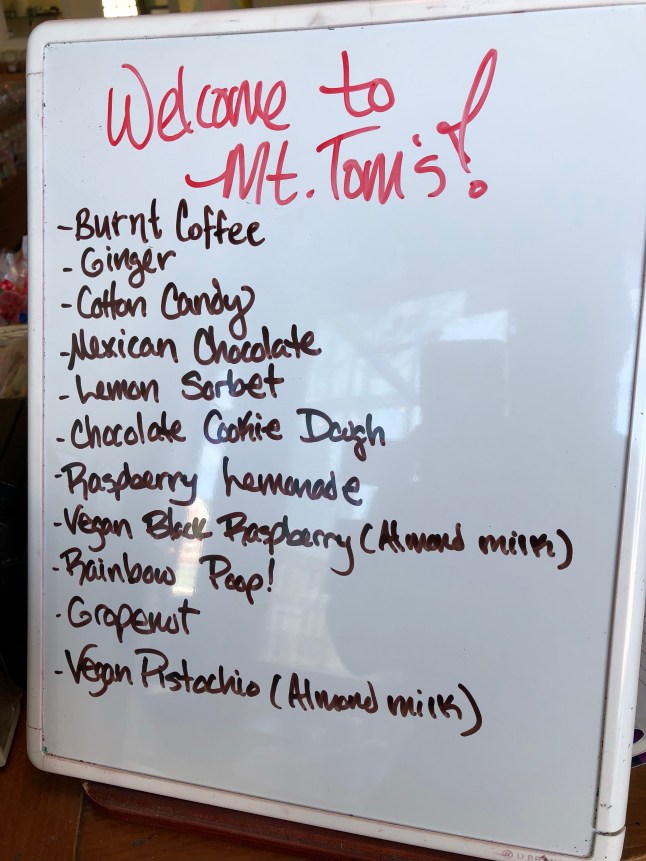 Welcome to
Mt. Tom's!
- Burnt Coffee
- Ginger
- Cotton Candy
- Mexican Chocolate
- Lemon Sorbet
- Chocolate Cookie Dough
- Raspberry Lemonade
- Vegan Black Raspberry (Almond milk)
- Rainbow Poop!
- Grapenut
- Vegan Pistachio (Almond milk)